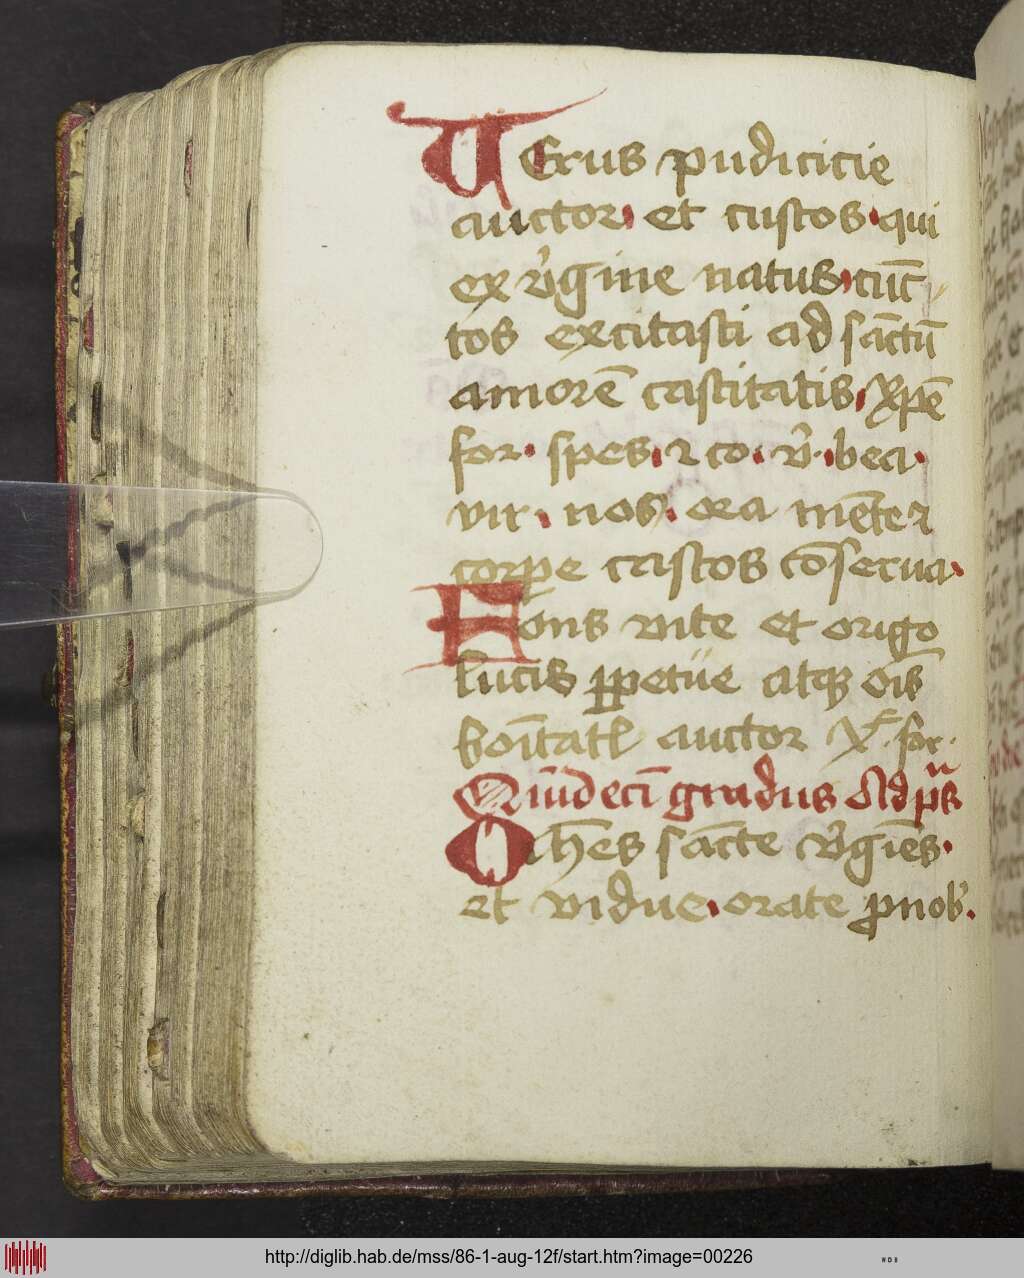 Verus pudicicie
auctor et custos qui
ex v̾gine natus cūc
tos excitasti ad sāctū
amorē castitatis xp̄e
for spes ⁊ co v̾ bea
vir nos ora mēte ⁊
corpe castos cōserua
Fons vite et origo
lucis ꝑpetue atqꝫ oīs
boītatꝭ auctor xͤ for
Quīdecī gradus Ad ps
Oēs sācte v̾gīes
et vidue orate ꝓ nob̾
http://diglib.hab.de/mss/86-1-aug-12f/start.htm?image=00226